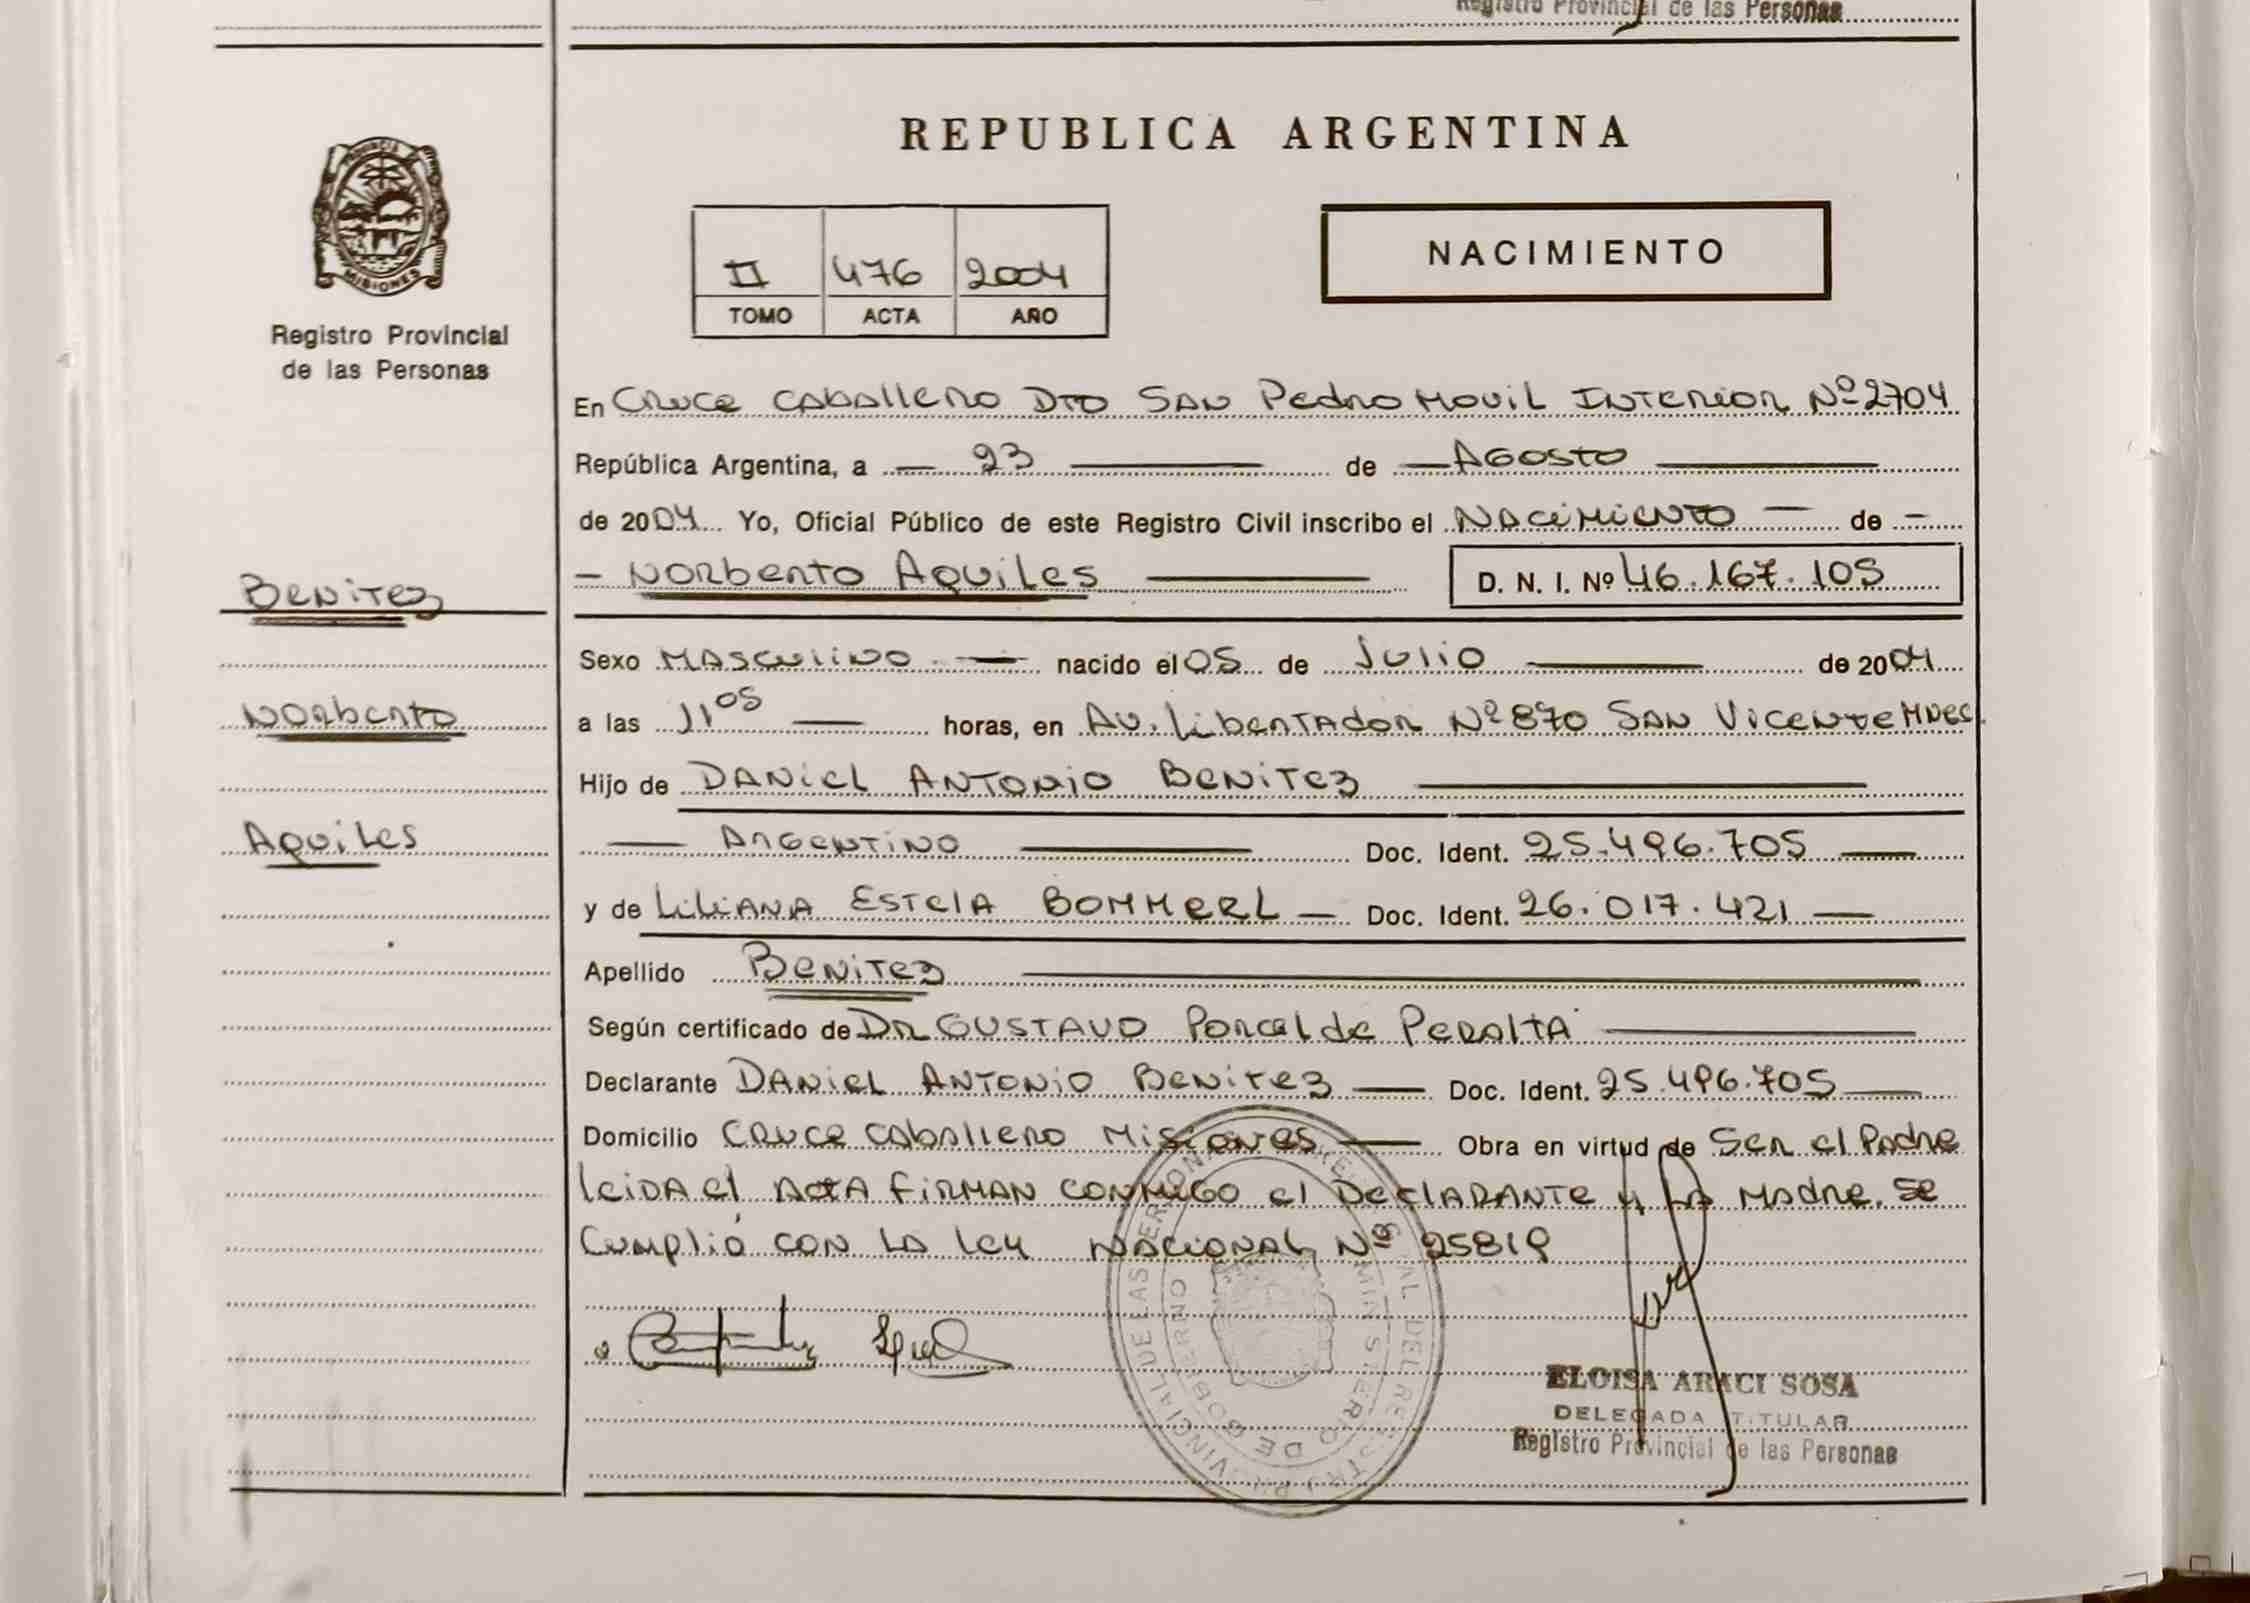 Registro Provincial de las Personas
REPUBLICA ARGENTINA
PROVINCIA
MISIONES
Registro Provincial
de las Personas
II 476 2004
TOMO ACTA AÑO
NACIMIENTO
En Cruce Caballero Dto San Pedro Movil Interior Nº 2704
República Argentina, a 23 de Agosto
de 2004 Yo, Oficial Público de este Registro Civil inscribo el Nacimiento de
Norberto Aquiles D. N. I. Nº 46.167.105
Benitez
Norberto
Aquiles
Sexo Masculino nacido el 05 de Julio de 2004
a las 11 05 horas, en Av. Libertador Nº 870 San Vicente Mnes.
Hijo de Daniel Antonio Benitez
Argentino Doc. Ident. 25.496.705
y de Liliana Estela BOMMERL Doc. Ident. 26.017.421
Apellido Benitez
Según certificado de Dr Gustavo Porcel de Peralta
Declarante Daniel Antonio Benitez Doc. Ident. 25.496.705
Domicilio Cruce Caballero Misiones Obra en virtud de Ser el Padre
leida el Acta firman conmigo el Declarante y la Madre. Se
Cumplió con la ley Nacional Nº 25819
PROVINCIAL DE LAS PERSONAS
MINISTERIO DE GOBIERNO
ELOISA ARACI SOSA
DELEGADA TITULAR
Registro Provincial de las Personas